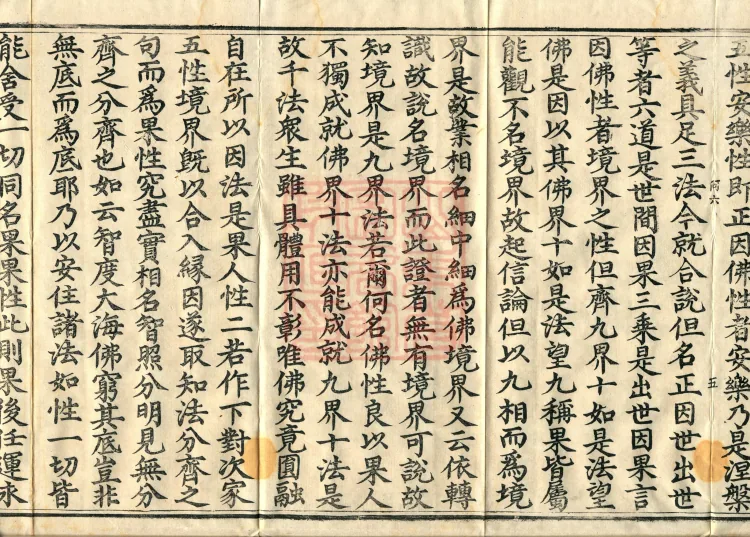 五性安樂性即正因佛性者安樂乃是涅槃
之義具足三法今就合說但名正因世出世
阿六
五
等者六道是世間因果三乘是出世因果言
因佛性者境界之性但齊九界十如是法望
佛是因以其佛界十如是法望九稱果皆屬
能觀不名境界故起信論但以九相而爲境
界是故業相名細中細爲佛境界又云依轉
識故說名境界而此證者無有境界可說故
知境界是九界法若爾何名佛性良以果人
不獨成就佛界十法亦能成就九界十法是
故千法衆生雖具體用不彰唯佛究竟圓融
自在所以因法是果人性二若作下對次家
五性境界旣以合入緣因遂取知法分齊之
句而爲果性究盡實相名智照分明見無分
齊之分齊也如云智度大海佛窮其底豈非
無底而爲底耶乃以安住諸法如性一切皆
能舍受一切同名果果性此則果後任運永